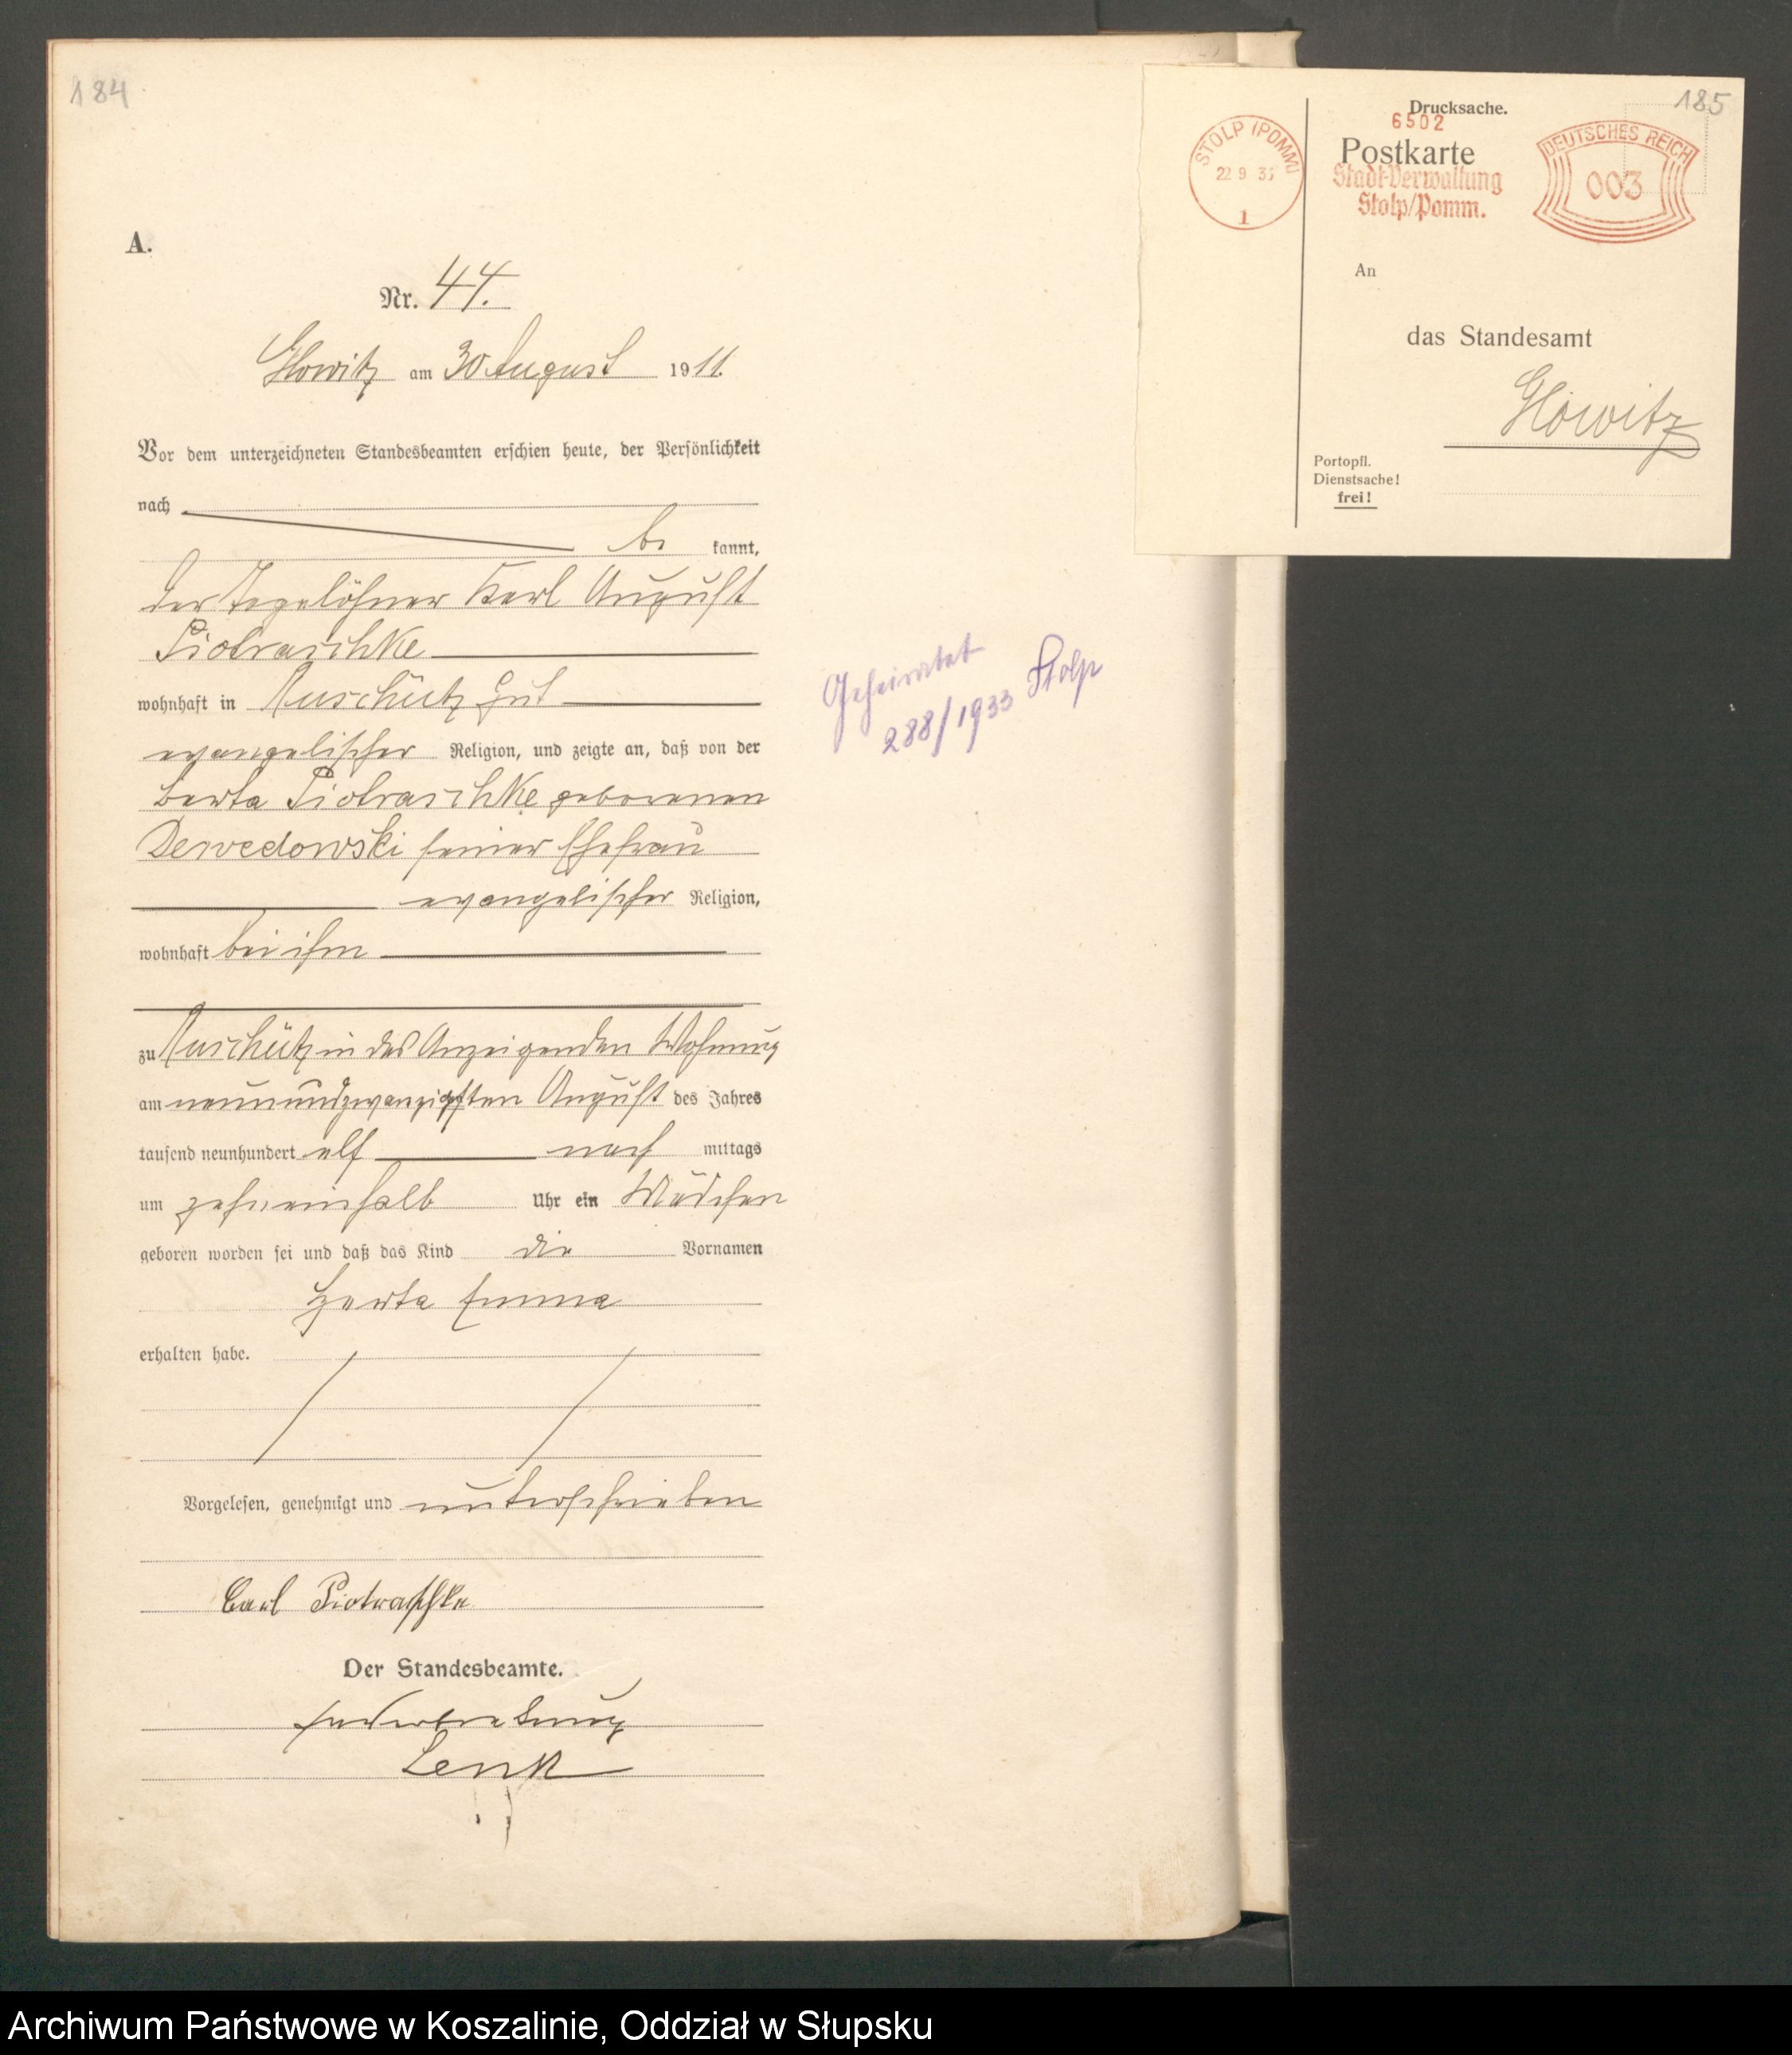 184
A.
Nr. 44.
Glowitz am 30 August 1911.
Vor dem unterzeichneten Standesbeamten erschien heute, der Persönlichkeit
nach
be kannt,
der Tagelöhner Karl August
Piotraschke
wohnhaft in Ruschütz Gut
evangelischer Religion, und zeigte an, daß von der
Berta Piotraschke geborenen
Dewedowski seiner Ehefrau
evangelischer Religion,
wohnhaft bei ihm
zu Ruschütz in des Anzeigenden Wohnung
am neunundzwanzigsten August des Jahres
tausend neunhundert elf nach mittags
um zehneinhalb Uhr ein Mädchen
geboren worden sei und daß das Kind die Vornamen
Herta Emma
erhalten habe.
Vorgelesen, genehmigt und unterschrieben
Carl Piotraschke
Der Standesbeamte.
In Vertretung
Lenk
Geheiratet
288/1933 Stolp
185
Drucksache.
6502
Postkarte
Stadt-Verwaltung
Stolp/Pomm.
STOLP (POMM)
22 9 33
1
DEUTSCHES REICH
003
An
das Standesamt
Glowitz
Portopfl.
Dienstsache!
frei!
Archiwum Państwowe w Koszalinie, Oddział w Słupsku